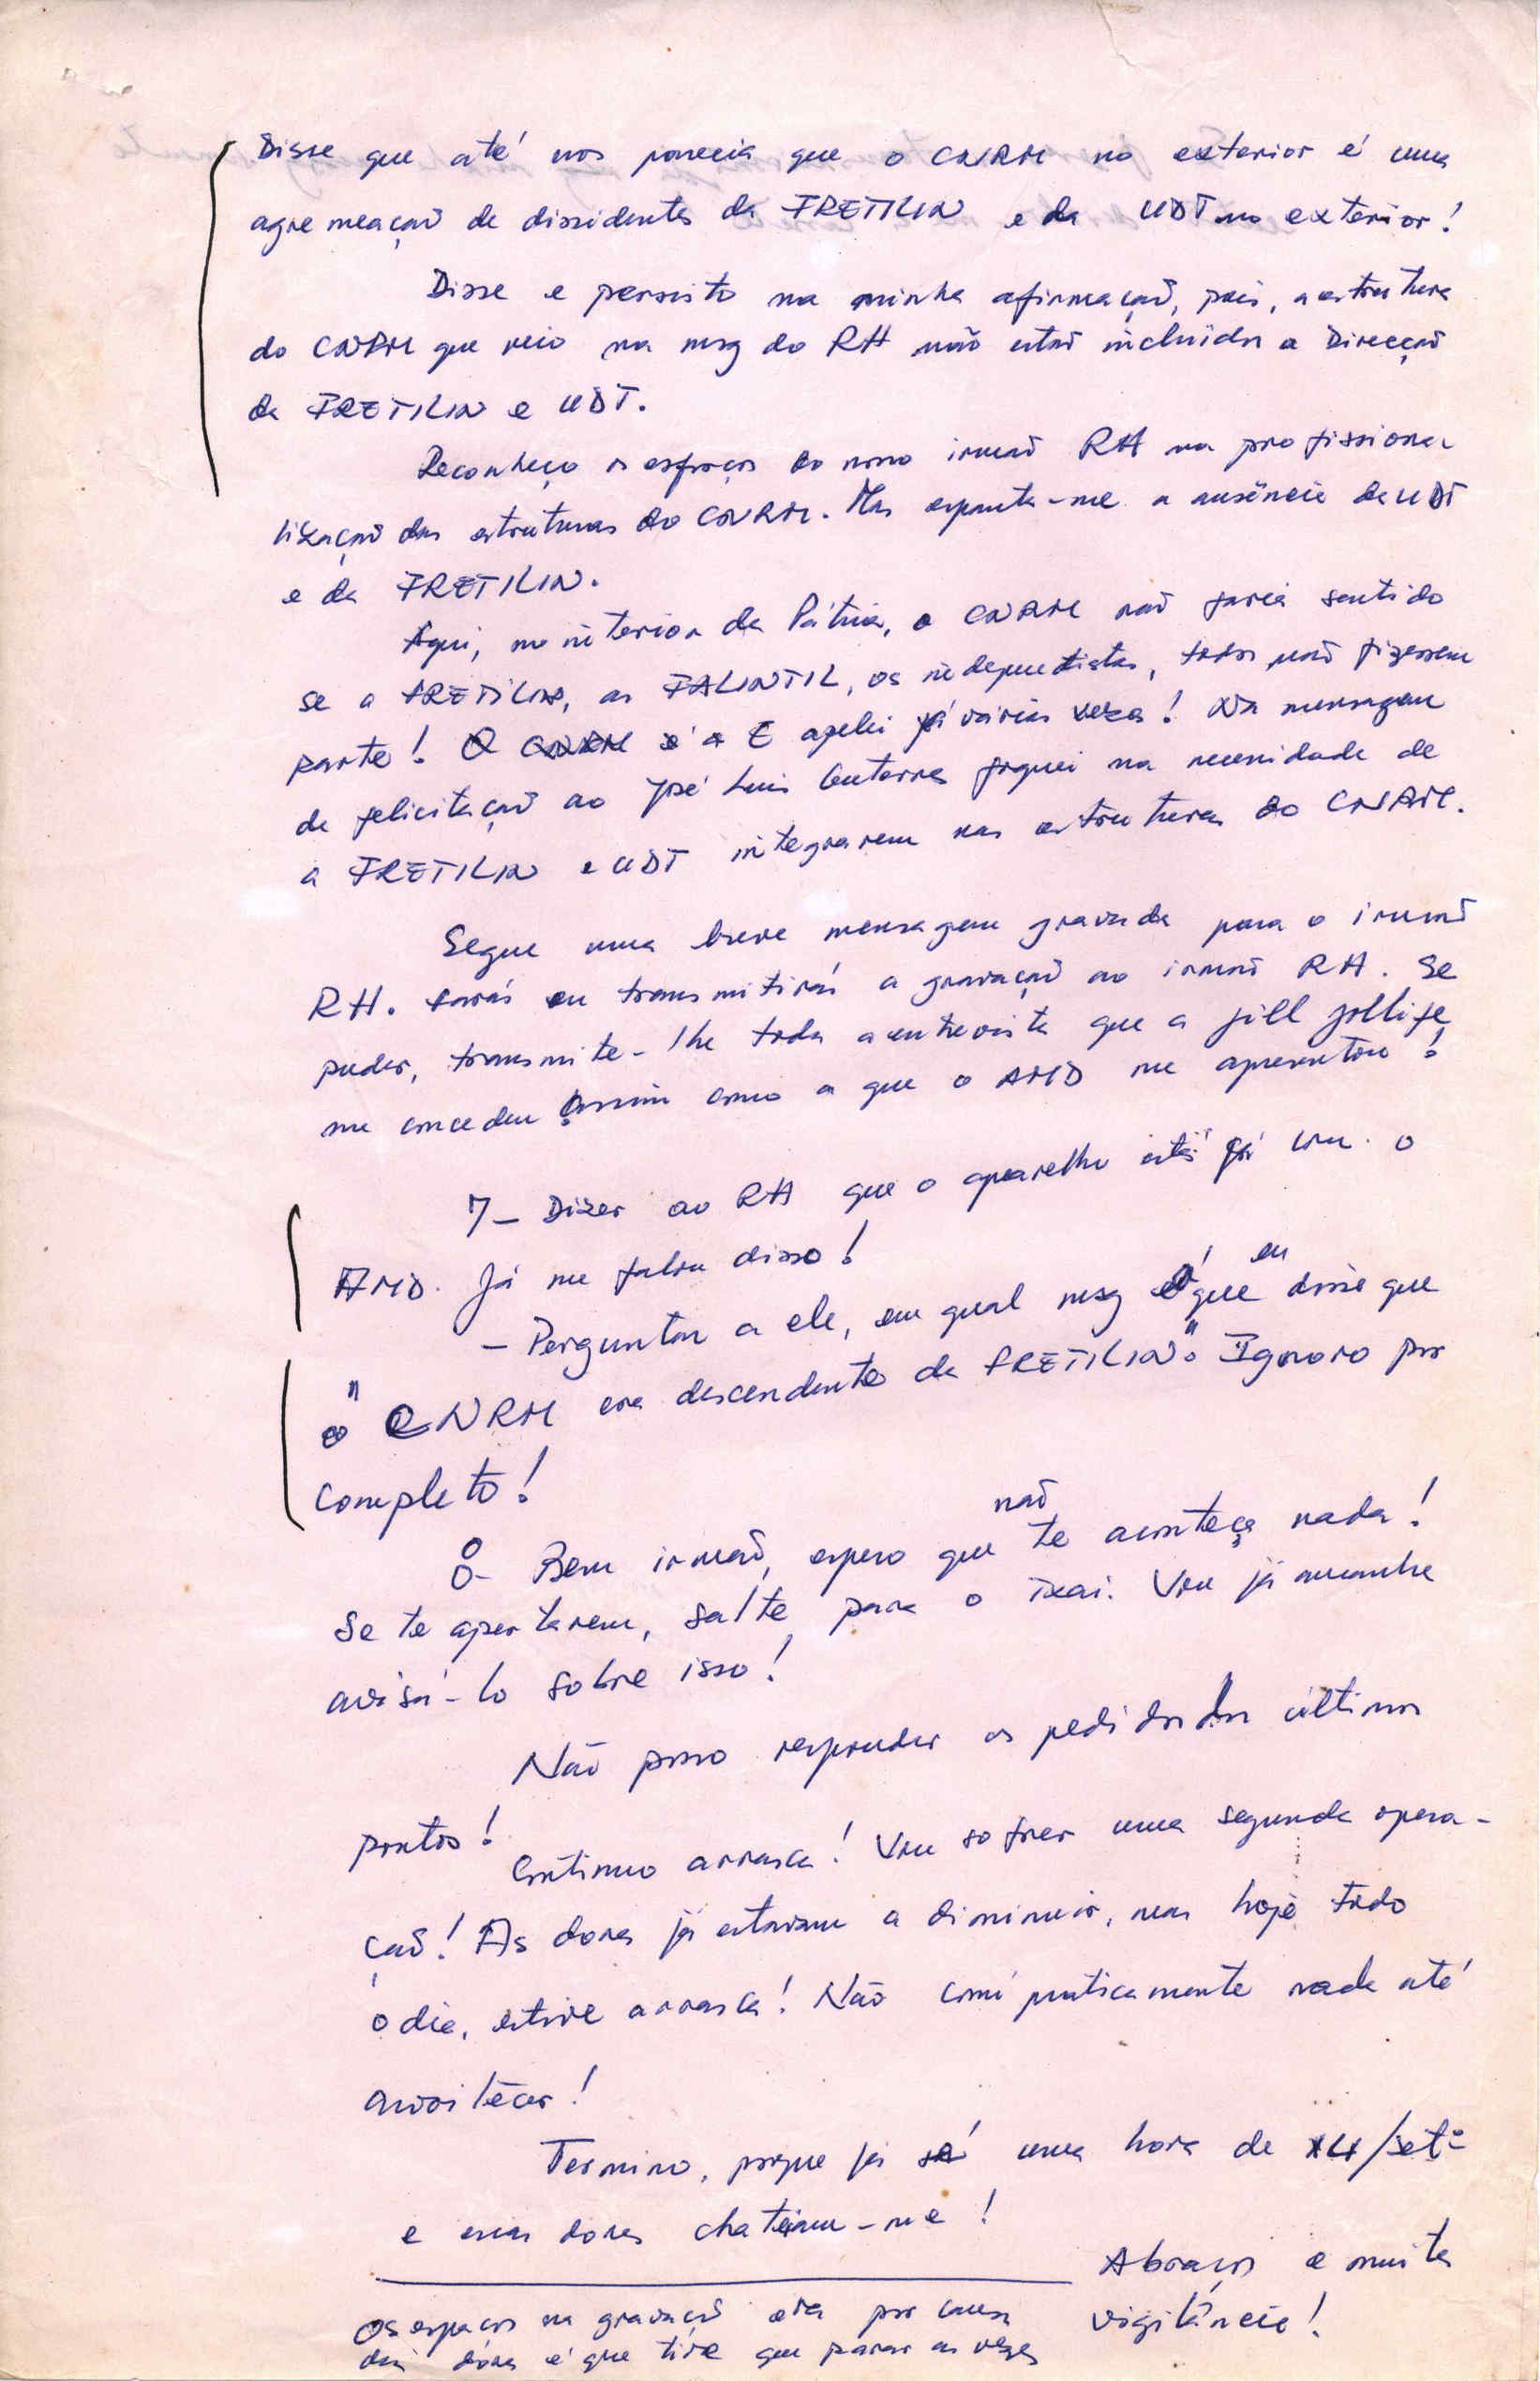 Disse que até nos parecia que o CNRM no exterior é uma
agremeação de dissidentes da FRETILIN e da UDT no exterior!
Disse e persisto na minha afirmação, pois, a estrutura
do CNRM que veio na msg do RH não está incluída a Direcção
da FRETILIN e UDT.
Reconheço os esforços do nosso irmão RH na profissiona
lização das estruturas do CNRM. Mas espanta-me a ausência da UDT
e da FRETILIN.
Aqui, no interior da Pátria, o CNRM não faria sentido
se a FRETILIN, as FALINTIL, os independistas, todos não fizessem
parte! O CNRM é a E apelei já várias vezes! Na mensagem
de felicitação ao José Luis Guterres foquei na necessidade de
a FRETILIN e UDT integrarem nas estruturas do CNRM.
Segue uma breve mensagem gravada para o irmão
RH. farás ou transmitirás a gravação ao irmão RH. Se
puder, transmite-lhe toda a entrevista que a Jill Jollife
me concedeu assim como a que o AMD me apresentou!
7- Dizer ao RH que o aparelho está já com o
AMD. Já me falou disso!
- Perguntar a ele, em qual msg é que eu disse que
o "CNRM era descendente da FRETILIN". Ignoro por
completo!
8- Bem irmão, espero que não te aconteça nada!
Se te apertarem, salte para o Ixai. Vou já amanhã
avisá-lo sobre isso!
Não posso responder os pedidos dos últimos
pontos!
Continuo à rasca! Vou sofrer uma segunda opera-
ção! As dores já estavam a diminuir, mas hoje todo
o dia, estive à rasca! Não comi praticamente nada até
anoitecer!
Termino, porque já sá uma hora de 14/Setº
e essas dores chateiam-me!
Abraços e muita
vigilância!
Os espaços na gravação era por causa
das dores é que tive que parar as vezes